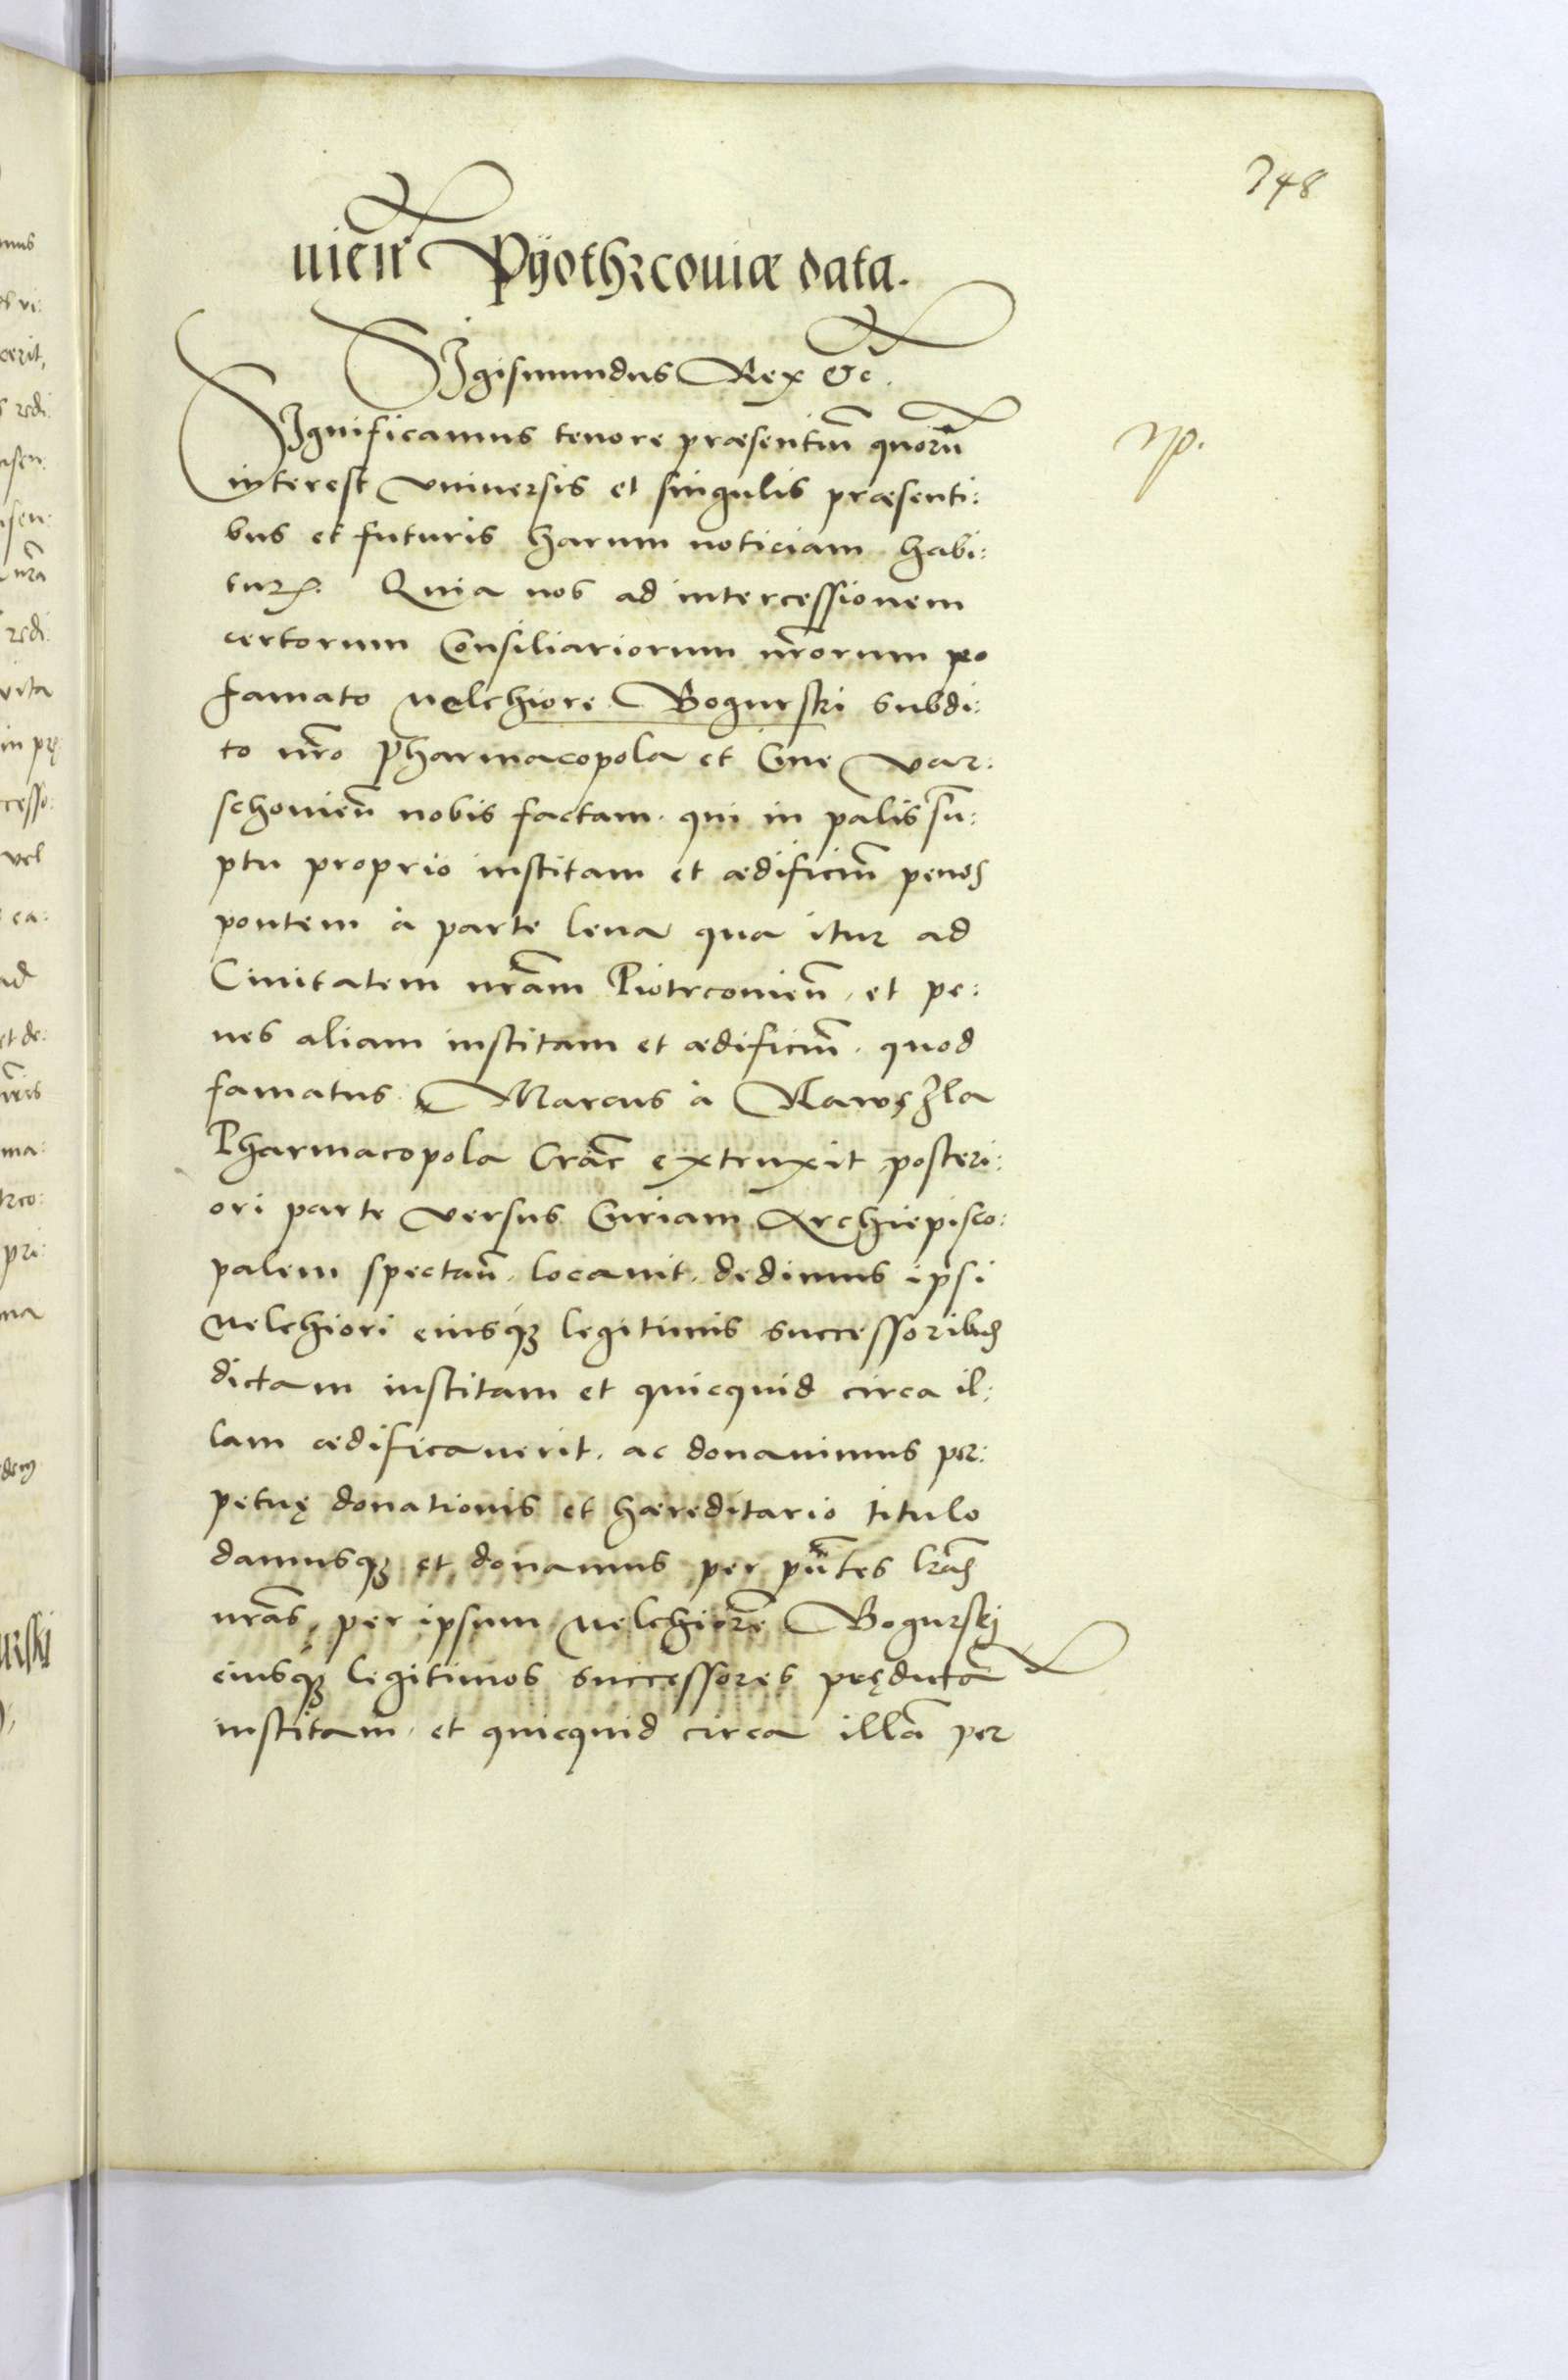 348
uieñ Pÿothrcouiæ data.
Sigismundus Rex &c̃.
Significamus tenore præsentiũ quorũ
interest vniuersis et singulis præsenti:
bus et futuris harum noticiam habi:
turꝝ. Quia nos ad intercessionem
certorum Consiliariorum nr̃orum po
famato Melchiore Bogurski subdi:
to nr̃o Pharmacopola et Ciue Var:
schouieñ nobis factam. qui in palis su͂:
ptu proprio institam et ædificiũ penes
pontem à parte leua qua itur ad
Ciuitatem nr̃am Piotrcouieñ, et pe:
nes aliam institam et ædificiũ. quod
famatus Marcus à
Pharmacopola Crac̃ extruxit posteri:
ori parte versus Curiam Archiepisco:
palem spectañ. locauit. dedimus ipsi
Melchiori eiusqꝫ legitimis successoribus
dictam institam et quicquid circa il:
lam ædificauerit. ac donauimus per:
petuę donationis et hæreditario titulo
damusqꝫ et donamus per pñtes lr̃as
nr̃as, per ipsum Melchiorẽ Bogurskj
eiusqꝫ legitimos successores prędictã
institam, et quicquid circa illã per